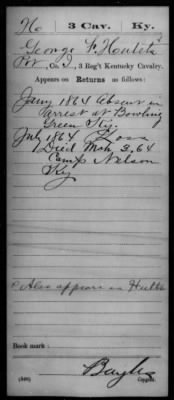 Ho 3 Cav. Ky.
George F.
Pvt, Co. , 3 Reg't Kentucky Cavalry.
Appears on
Returns as follows:
Jany 1864 Absent in
arrest at Bowling
Green Ky.
1864 Loss
Died Mch 3, 64
Camp Nelson
Ky
Also appears as
Book mark:
(546)
Copyist.